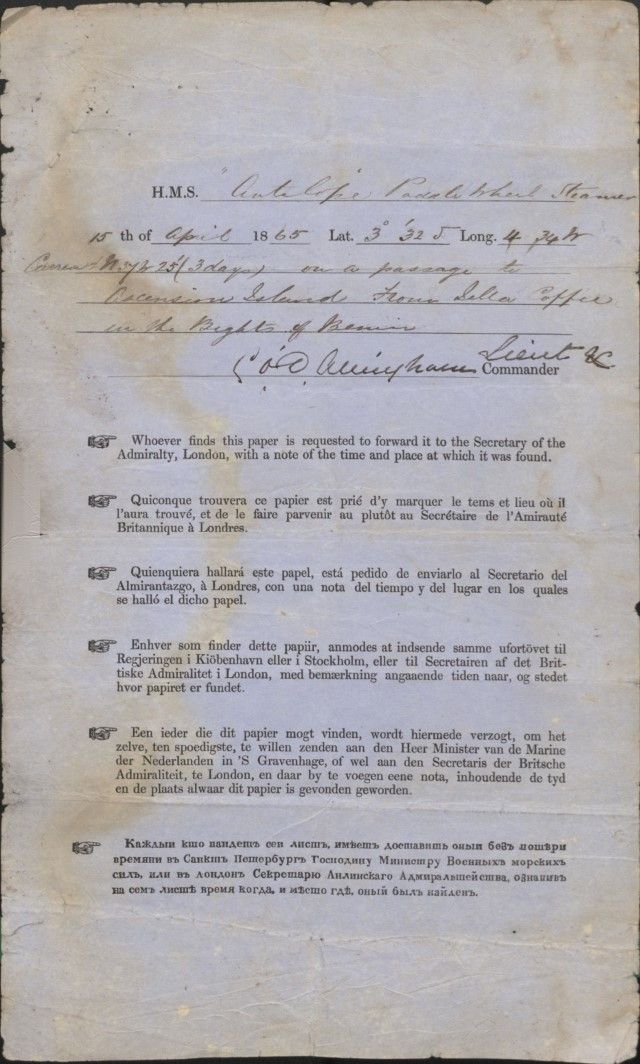 H.M.S. "Antelope" Paddle Wheel Steamer
15 th of April 1865 Lat. 3° 32 S Long. 4 34 W
(3 days) on a passage to
Ascension Island From Jella Coffee
in the Bights of Benin
Lieut &c
Commander
☞ Whoever finds this paper is requested to forward it to the Secretary of the
Admiralty, London, with a note of the time and place at which it was found.
☞ Quiconque trouvera ce papier est prié d'y marquer le tems et lieu où il
l'aura trouvé, et de le faire parvenir au plutôt au Secrétaire de l'Amirauté
Britannique à Londres.
☞ Quienquiera hallará este papel, está pedido de enviarlo al Secretario del
Almirantazgo, à Londres, con una nota del tiempo y del lugar en los quales
se halló el dicho papel.
☞ Enhver som finder dette papiir, anmodes at indsende samme ufortövet til
Regjeringen i Kiöbenhavn eller i Stockholm, eller til Secretairen af det Brit-
tiske Admiralitet i London, med bemærkning angaaende tiden naar, og stedet
hvor papiret er fundet.
☞ Een ieder die dit papier mogt vinden, wordt hiermede verzogt, om het
zelve, ten spoedigste, te willen zenden aan den Heer Minister van de Marine
der Nederlanden in 'S Gravenhage, of wel aan den Secretaris der Britsche
Admiraliteit, te London, en daar by te voegen eene nota, inhoudende de tyd
en de plaats alwaar dit papier is gevonden geworden.
☞ Каждыи кто наидетъ сеи листъ, имѣетъ доставить оныи безъ потѣри
времяни въ Санктъ Петербургъ Господину Министру Военныхъ морскихъ
силъ, или въ лондонъ Секретарю Анлинскаго Адмиральтейства, ознапивъ
на семъ листѣ время когда, и мѣсто гдѣ, оный былъ найденъ.